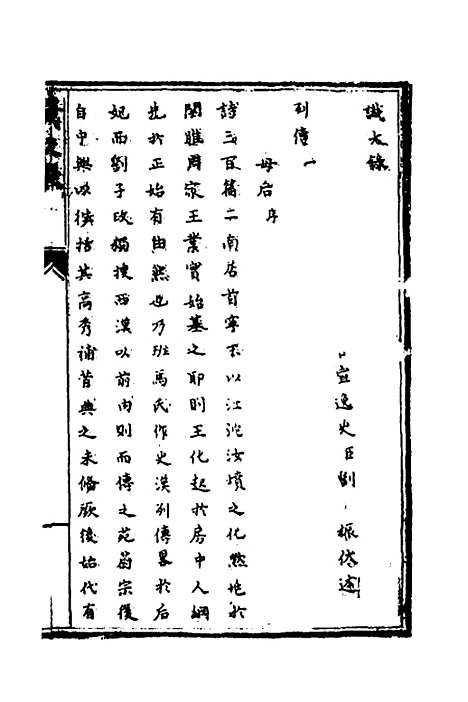 識大錄
宣逸史臣劉振恭述
列傳一
母后序
詩三百篇二南居首寧不以江沱汝墳之化然地於
關雎周家王業實始基之耶則王化起於房中人綱
先於正始有由然也乃班馬氏作史漢列傳畧於后
妃而劉子政獨搜西漢以前內則而傳之范蔚宗復
自中興以後括其高秀補昔典之未脩厥後始代有